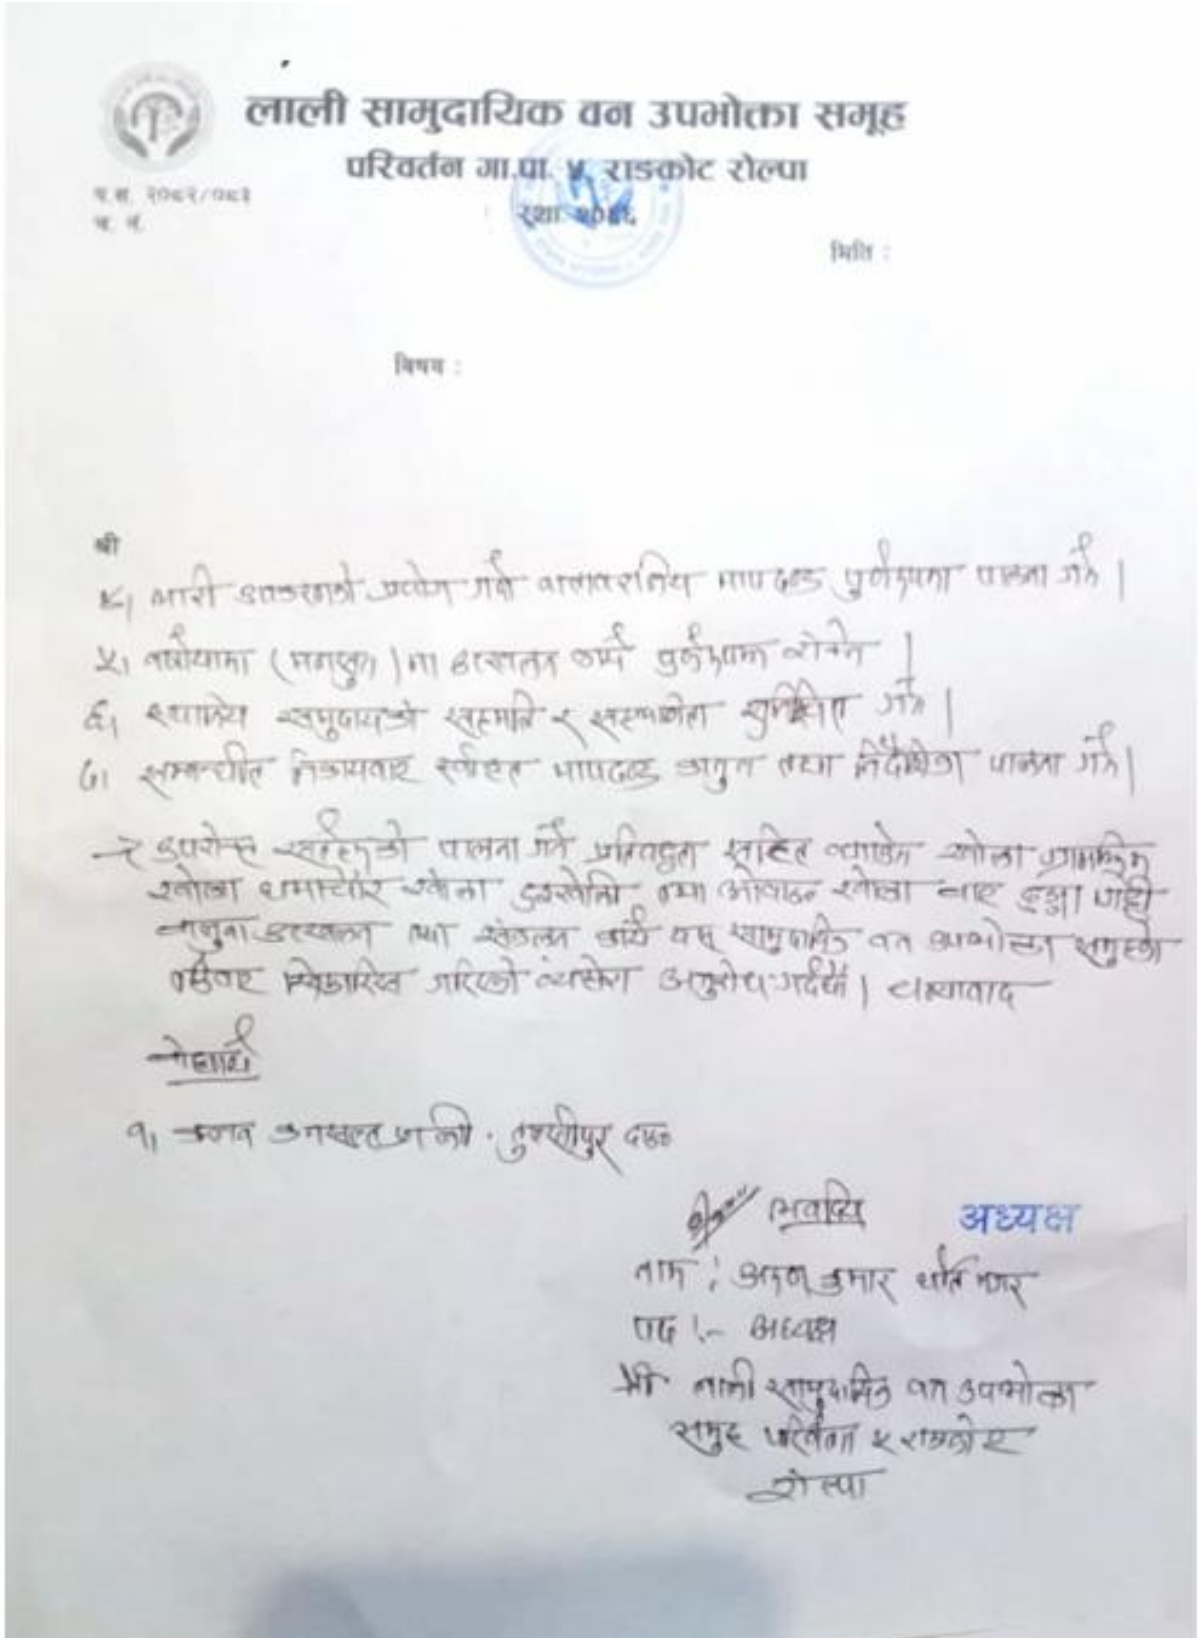 लाली सामुदायिक वन उपभोक्ता समूह
परिवर्तन गा.पा. ५, राङकोट रोल्पा
प.स. २०८२/०८३
स्था. २०५६
च. नं.
मिति :
विषय :
श्री
४। भारी उपकरणको प्रयोग गर्दा वातावरणिय मापदण्ड पुर्णरुपमा पालना गर्ने |
५। वर्षायाम (मनसुन) मा उत्खनन कार्य पुर्णरुपमा रोक्ने |
६। स्थानिय समुदायको सहमति र सहभागिता सुनिश्चित गर्ने |
७। सम्बन्धीत निकायबाट स्वीकृत मापदण्ड कानुन तथा निर्देशिका पालना गर्ने |
उपरोक्त सर्तहरुको पालना गर्ने प्रतिवद्धता सहित खोला
खोला खोला तथा खोला बाट ढुङ्गा गिट्टी
बालुवा उत्खनन तथा संकलन कार्य यस सामुदायिक वन उपभोक्ता समुहको
तर्फबाट सिफारिस गरिएको व्यहोरा अनुरोध गर्दछौ | धन्यवाद
बोधार्थ
१। तुलसीपुर दाङ
भवदिय अध्यक्ष
नाम : कुमार घर्ति मगर
पद :- अध्यक्ष
श्री लाली सामुदायिक वन उपभोक्ता
समुह परिवर्तन ५ राङकोट
रोल्पा